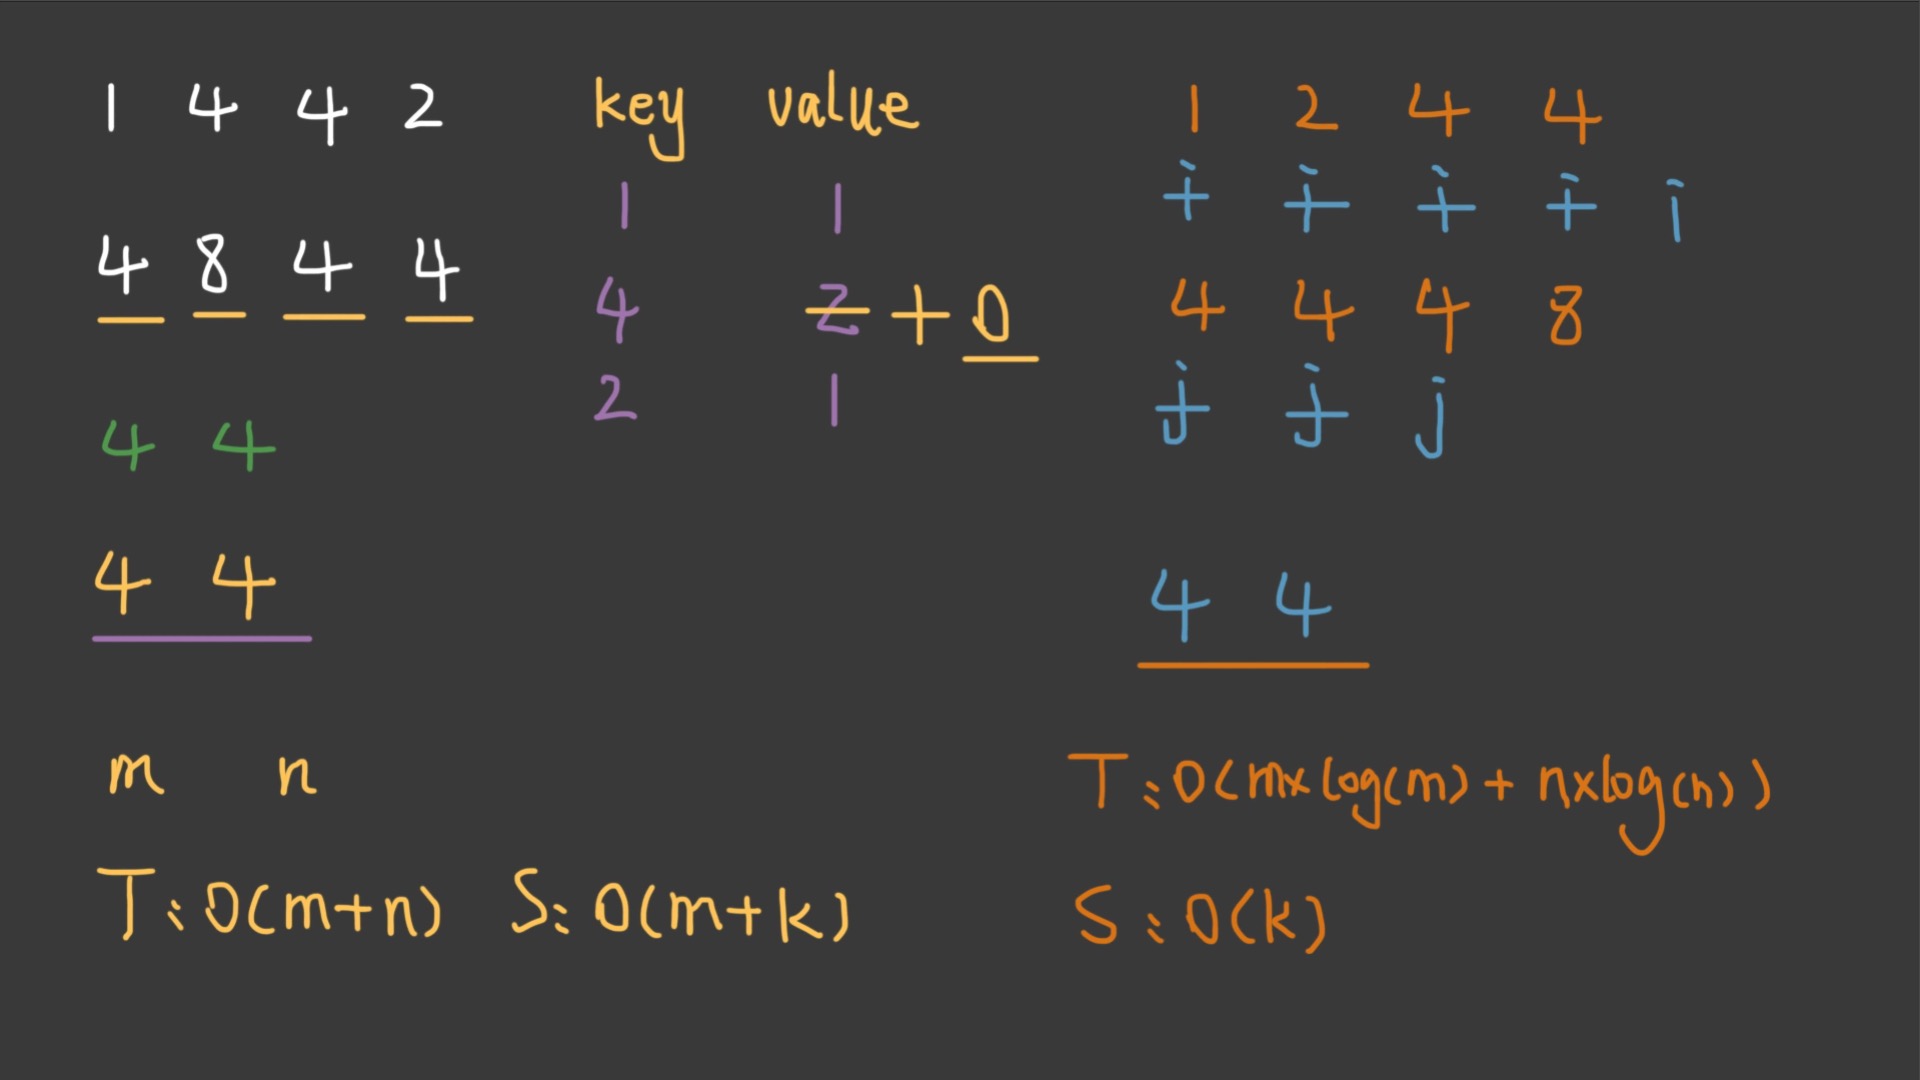 1 4 4 2
4 8 4 4
4 4
4 4
m n
T: O(m+n) S: O(m+k)
key value
1 1
4 2 1 0
2 1
1 2 4 4
i i i i i
4 4 4 8
j j j
4 4
T: O(m×log(m) + n×log(n))
S: O(k)